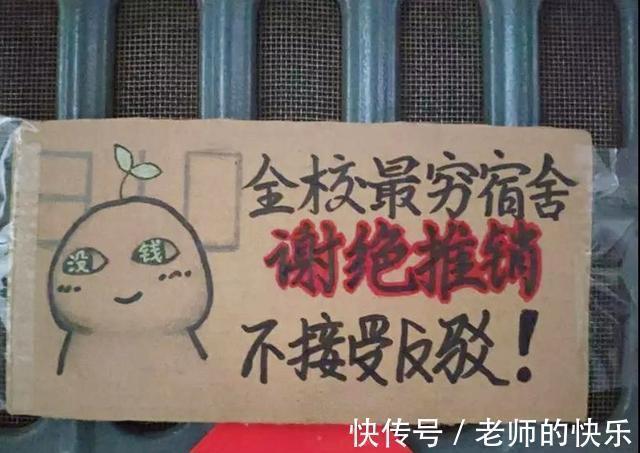 全校最穷宿舍
谢绝推销
不接受反驳！
没 钱
快传号 / 老师的快乐